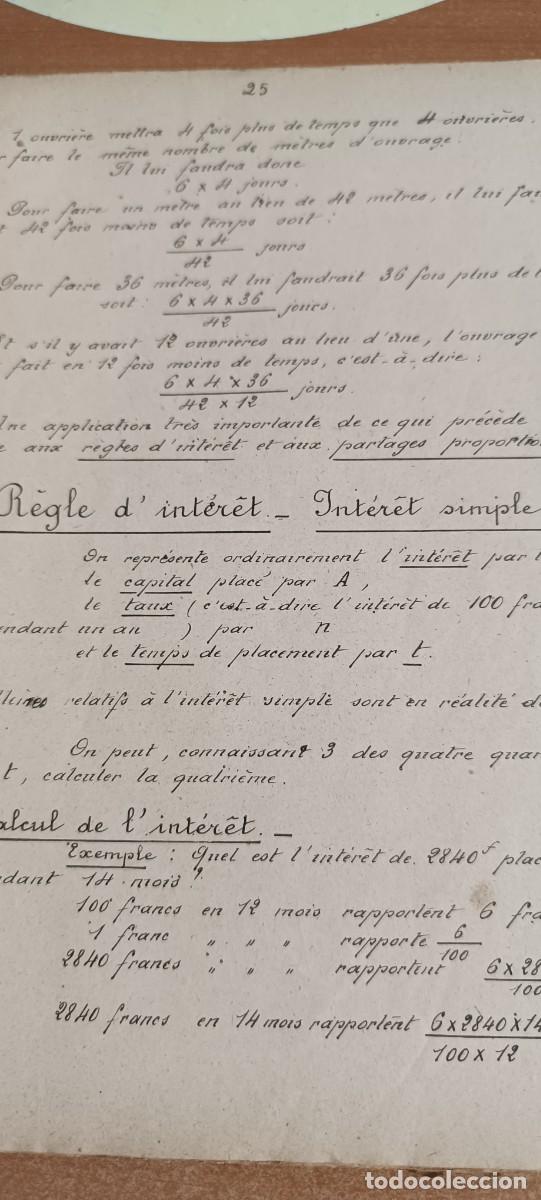 25
1 ouvrière mettra 4 fois plus de temps que 4 ouvrières.
r faire le même nombre de mètres d'ouvrage.
Il lui faudra donc
6 x 4 jours.
Pour faire un mètre au lieu de 42 mètres, il lui fau
42 fois moins de temps soit :
6 x 4
42 jours
Pour faire 36 mètres, il lui faudrait 36 fois plus de t
soit : 6 x 4 x 36
42 jours.
Et s'il y avait 12 ouvrières au lieu d'une, l'ouvrage
fait en 12 fois moins de temps, c'est-à-dire :
6 x 4 x 36
42 x 12 jours.
Une application très importante de ce qui précède
e aux règles d'intérêt et aux partages proportion
Règle d'intérêt. _ Intérêt simple
On représente ordinairement l'intérêt par
le capital placé par A,
le taux (c'est-à-dire l'intérêt de 100 fra
endant un an ) par n
et le temps de placement par t.
relatifs à l'intérêt simple sont en réalité d
On peut, connaissant 3 des quatre quan
t, calculer la quatrième.
alcul de l'intérêt. _
Exemple : Quel est l'intérêt de 2840f plac
dant 14 mois ?
100 francs en 12 mois rapportent 6 fra
1 franc " " " rapporte 6
100
2840 francs " " " rapportent 6 x 28
100
2840 francs en 14 mois rapportent 6 x 2840 x 14
100 x 12
todocoleccion